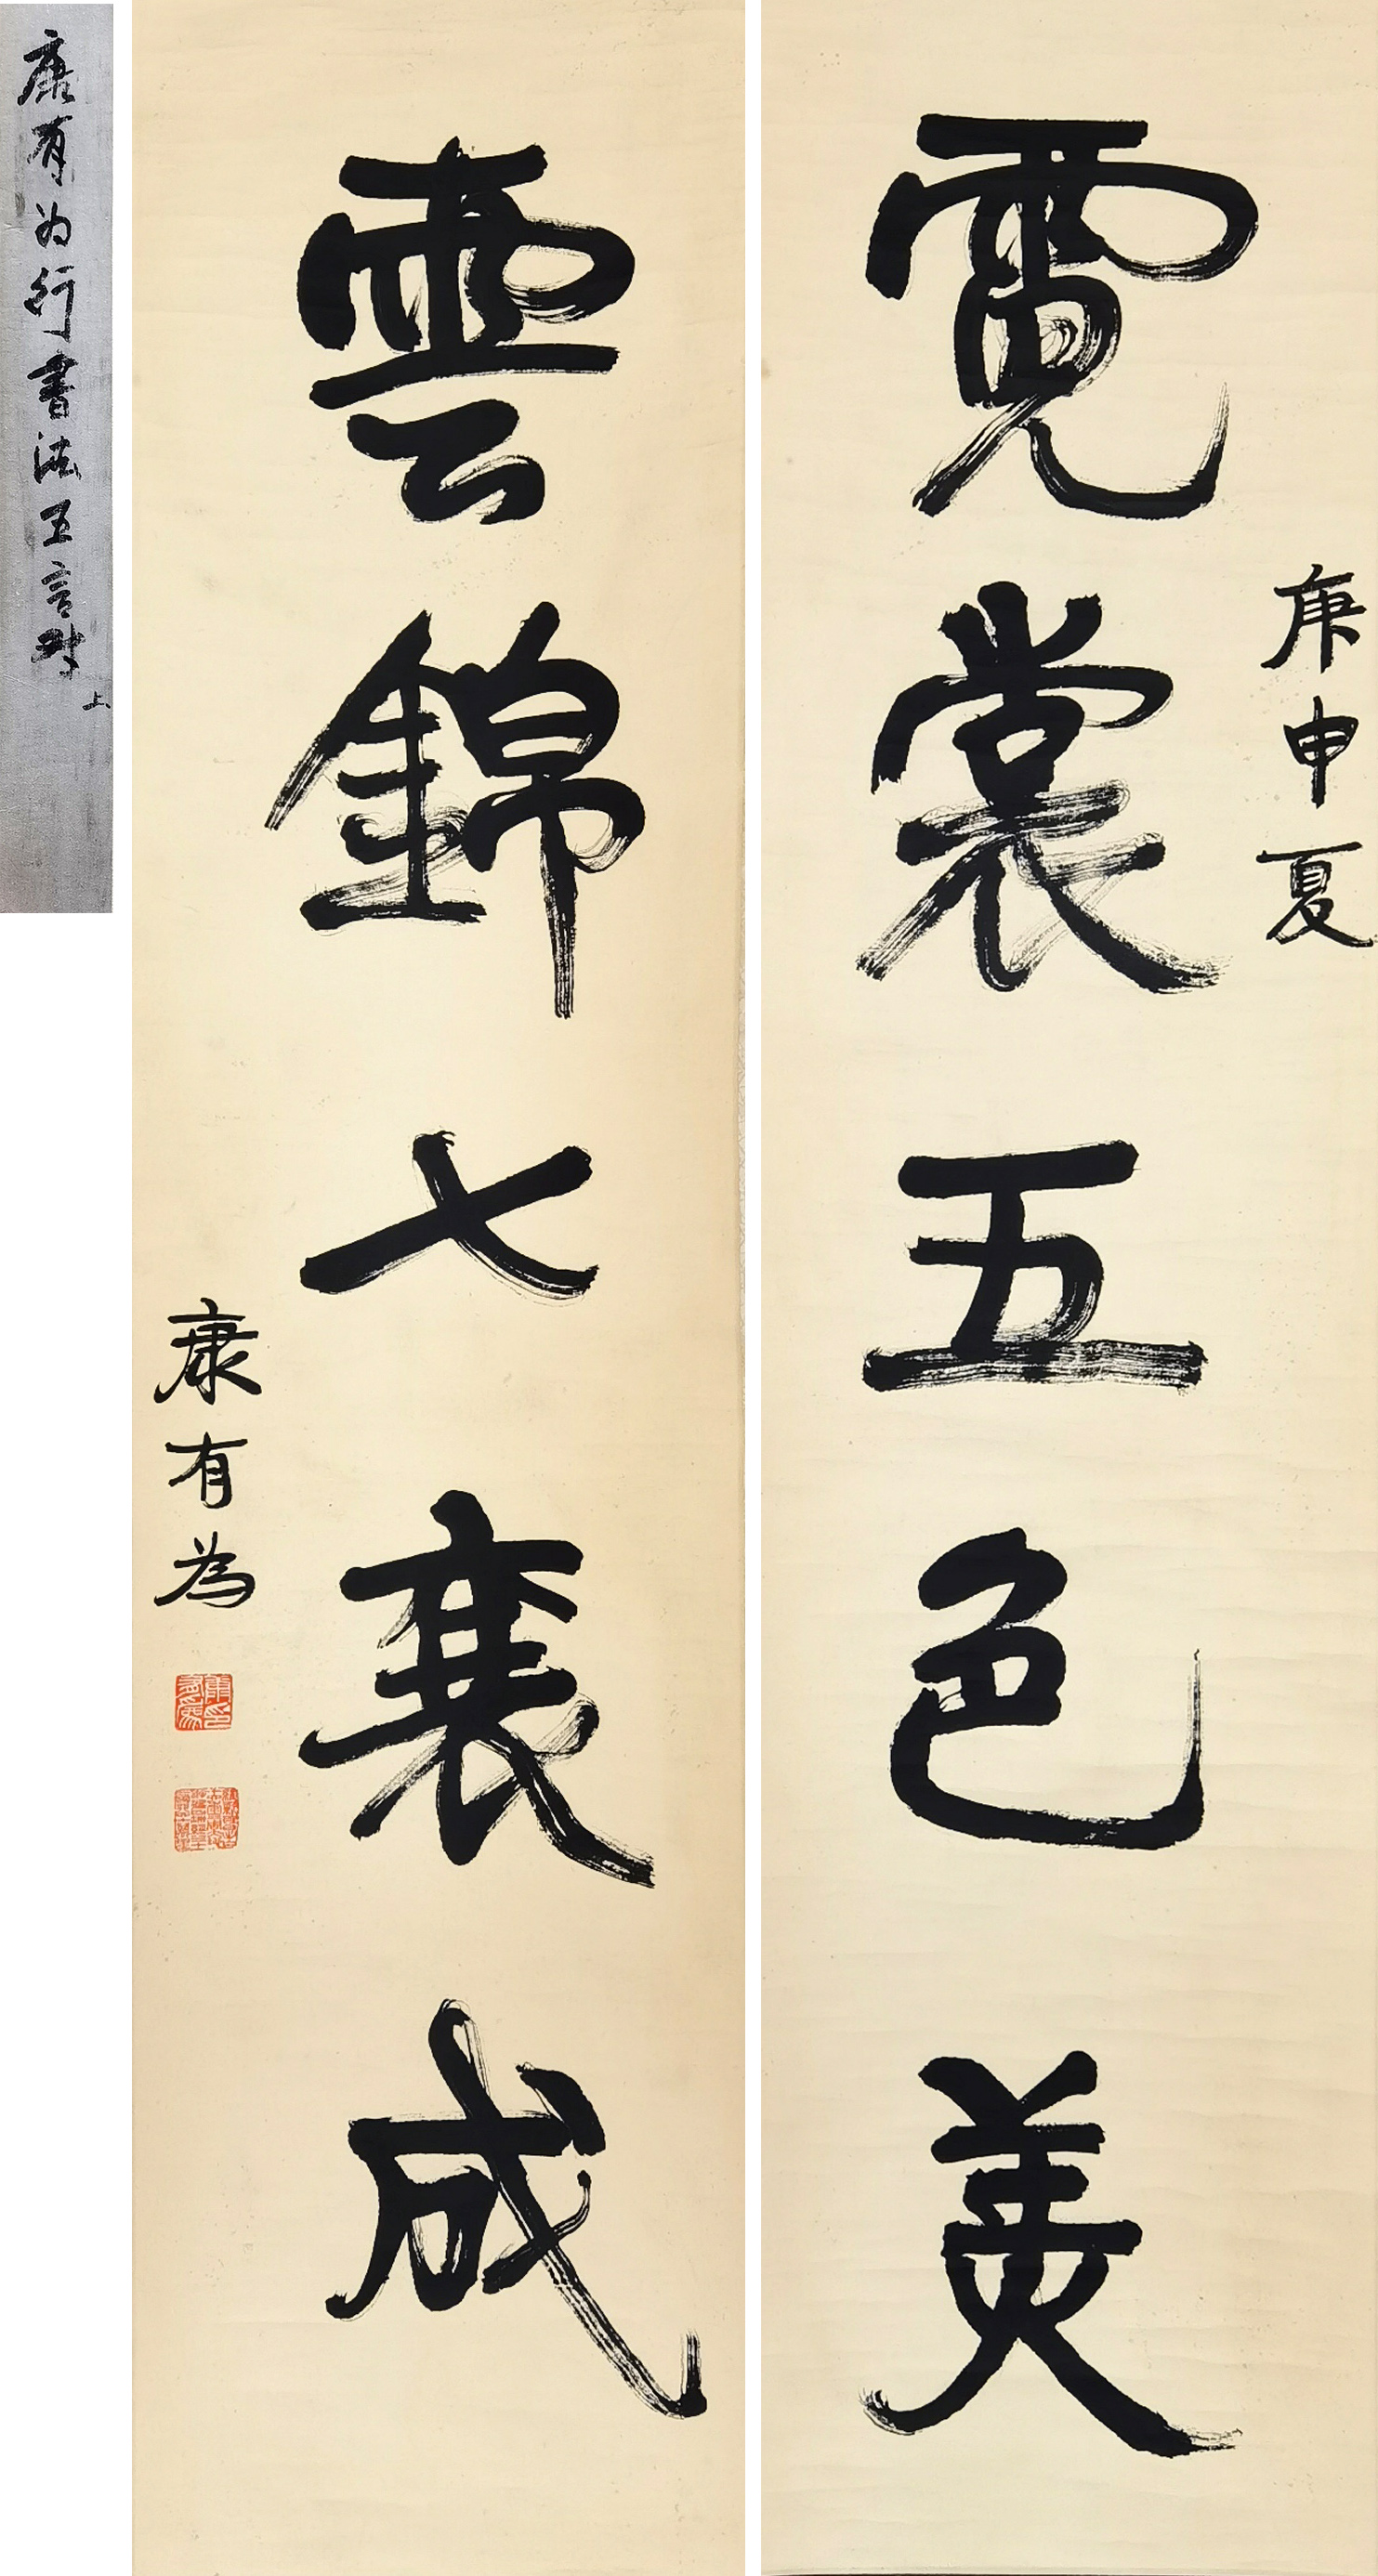 庚申夏
霓裳五色美
雲錦七襄成
康有為
康有為印
康有为行書法五言對
上